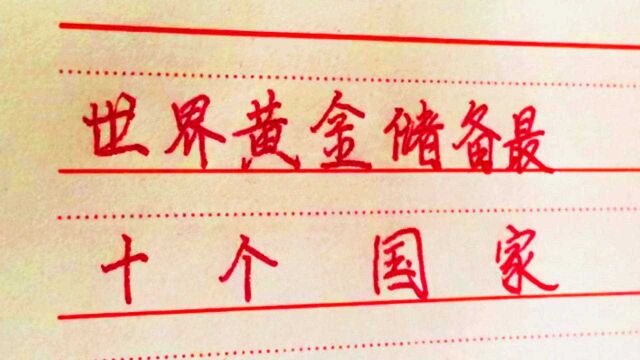 世界黄金储备最
十个国家